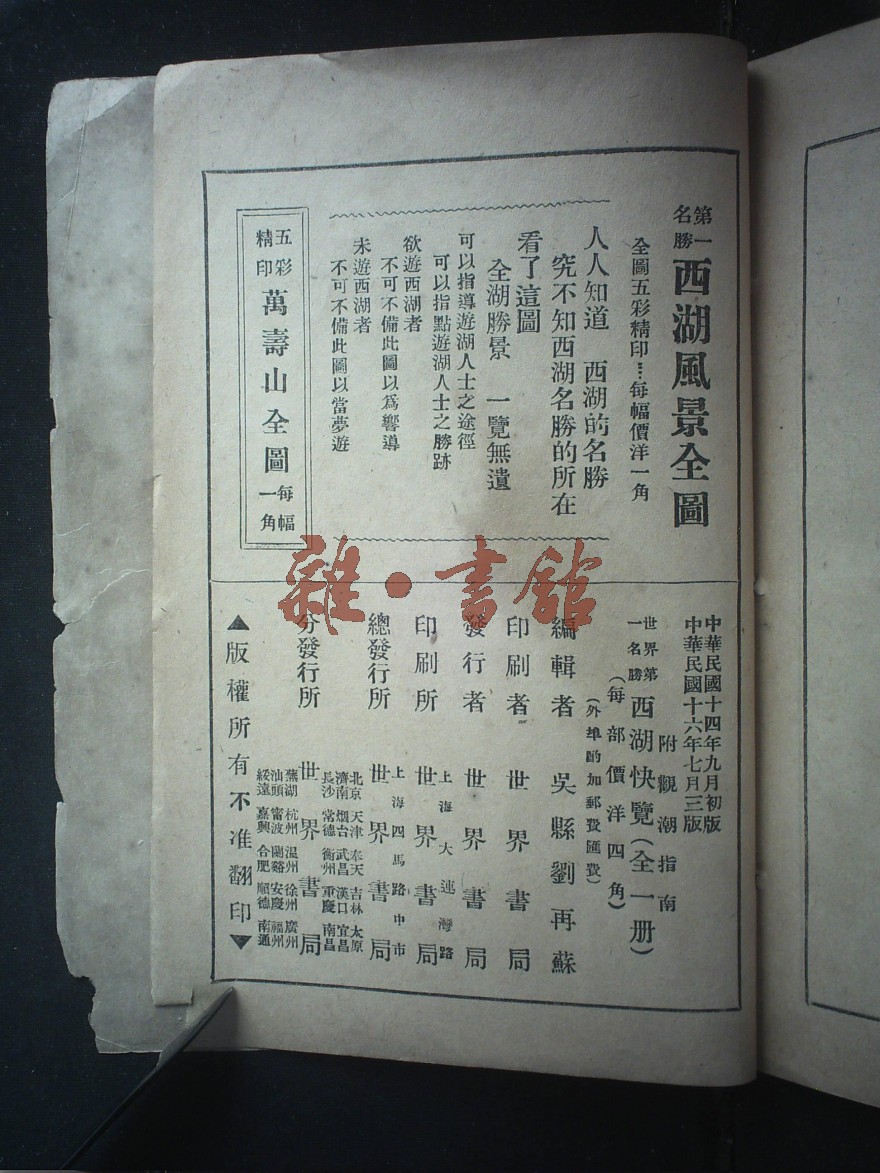 第一名勝 西湖風景全圖
全圖五彩精印…每幅價洋一角
人人知道 西湖的名勝
究不知西湖名勝的所在
看了這圖
全湖勝景 一覽無遺
可以指導遊湖人士之途徑
可以指點遊湖人士之勝跡
欲遊西湖者
不可不備此圖以爲響導
未遊西湖者
不可不備此圖以當夢遊
五彩精印 萬壽山全圖 每幅一角
中華民國十四年九月初版
中華民國十六年七月三版
附觀潮指南
世界第一名勝 西湖快覽(全一册)
(每部價洋四角)
(外埠酌加郵費匯費)
編輯者 吳縣劉再蘇
印刷者 世界書局
發行者 世界書局
印刷所 上海大連灣路 世界書局
總發行所 上海四馬路中市 世界書局
分發行所 世界書局
北京 天津 奉天 吉林 太原
濟南 烟台 武昌 漢口 宜昌
長沙 常德 衡州 重慶 南昌
蕪湖 杭州 温州 徐州 廣州
汕頭 甯波 蘭谿 安慶 福州
綏遠 嘉興 合肥 順德 南通
▲版權所有不准翻印▼
雜·書館